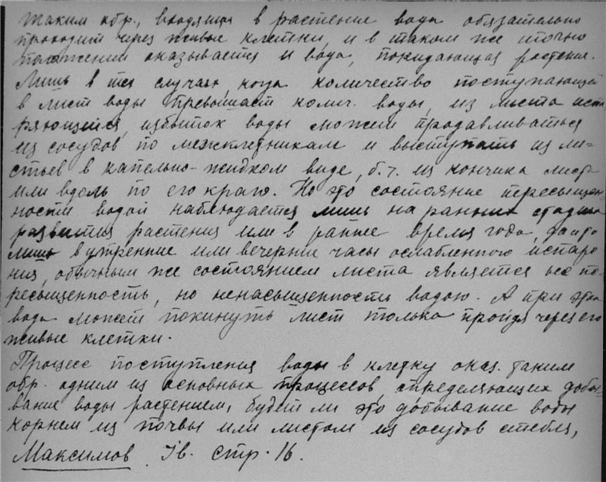 Таким обр., входящая в растение вода обязательно
проходит через живые клетки, и в таком же точно
положении оказывается и вода, покидающая растение.
Лишь в тех случаях, когда количество поступающей
в лист воды превышает колич. воды, из листа исп
ряющейся, избыток воды может продавливаться
из сосудов по межклетникам и выступать из ли-
стьев в капельно-жидком виде, б.ч. из кончика листа
или вдоль по его краю. Но это состояние пересыщен-
ности водой наблюдается лишь на ранних стадиях
развития растения или в ранее время года, либо
лишь в утренние или вечерние часы ослабленного испаре
ния, обычным же состоянием листа является не пе-
ресыщенность, но ненасыщенность водою. А при этом
вода может покинуть лист только пройдя через его
живые клетки.
Процесс поступления воды в клетку оказ. таким
обр. одним из основных процессов, определяющих добы-
вание воды растением, будет ли это добывание воды
корнем из почвы или листом из сосудов стебля,
Максимов Iв. стр. 16.